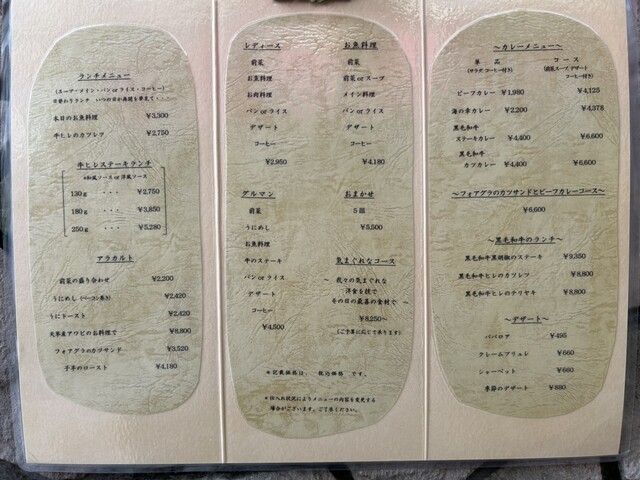 ランチメニュー
(スープ・メイン・パン or ライス・コーヒー)
日替わりランチ いつの日か再開を夢見て・・・
本日のお魚料理 ¥3,300
牛ヒレのカツレツ ¥2,750
牛ヒレステーキランチ
*和風ソース or 洋風ソース
130g ・・・ ¥2,750
180g ・・・ ¥3,850
250g ・・・ ¥5,280
アラカルト
前菜の盛り合わせ ¥2,200
うにめし(ベーコン巻き) ¥2,420
うにトースト ¥2,420
天草産アワビのお料理で ¥8,800
フォアグラのカツサンド ¥3,520
子羊のロースト ¥4,180
レディース
前菜
お魚料理
お肉料理
パン or ライス
デザート
コーヒー
¥2,950
お魚料理
前菜
前菜 or スープ
メイン料理
パン or ライス
デザート
コーヒー
¥4,180
グルマン
前菜
うにめし
お魚料理
牛のステーキ
パン or ライス
デザート
コーヒー
¥4,500
おまかせ
5皿
¥5,500
気まぐれなコース
~ 我々の気まぐれな
洋食を技で
その日の最善の食材で ~
¥8,250~
(ご予算に応じて承ります)
*記載価格は、 税込価格 です。
*仕入れ状況によりメニューの内容を変更する
場合がございます。ご了承ください。
~カレーメニュー~
単品 コース
(サラダ コーヒー付き) (前菜 スープ デザート
コーヒー付き)
ビーフカレー ¥1,980 ¥4,125
海の幸カレー ¥2,200 ¥4,378
黒毛和牛
ステーキカレー ¥4,400 ¥6,600
黒毛和牛
カツカレー ¥4,400 ¥6,600
~フォアグラのカツサンドとビーフカレーコース~
¥6,600
~黒毛和牛のランチ~
黒毛和牛黒胡椒のステーキ ¥9,350
黒毛和牛ヒレのカツレツ ¥8,800
黒毛和牛ヒレのテリヤキ ¥8,800
~デザート~
ババロア ¥495
クレームブリュレ ¥660
シャーベット ¥660
季節のデザート ¥880